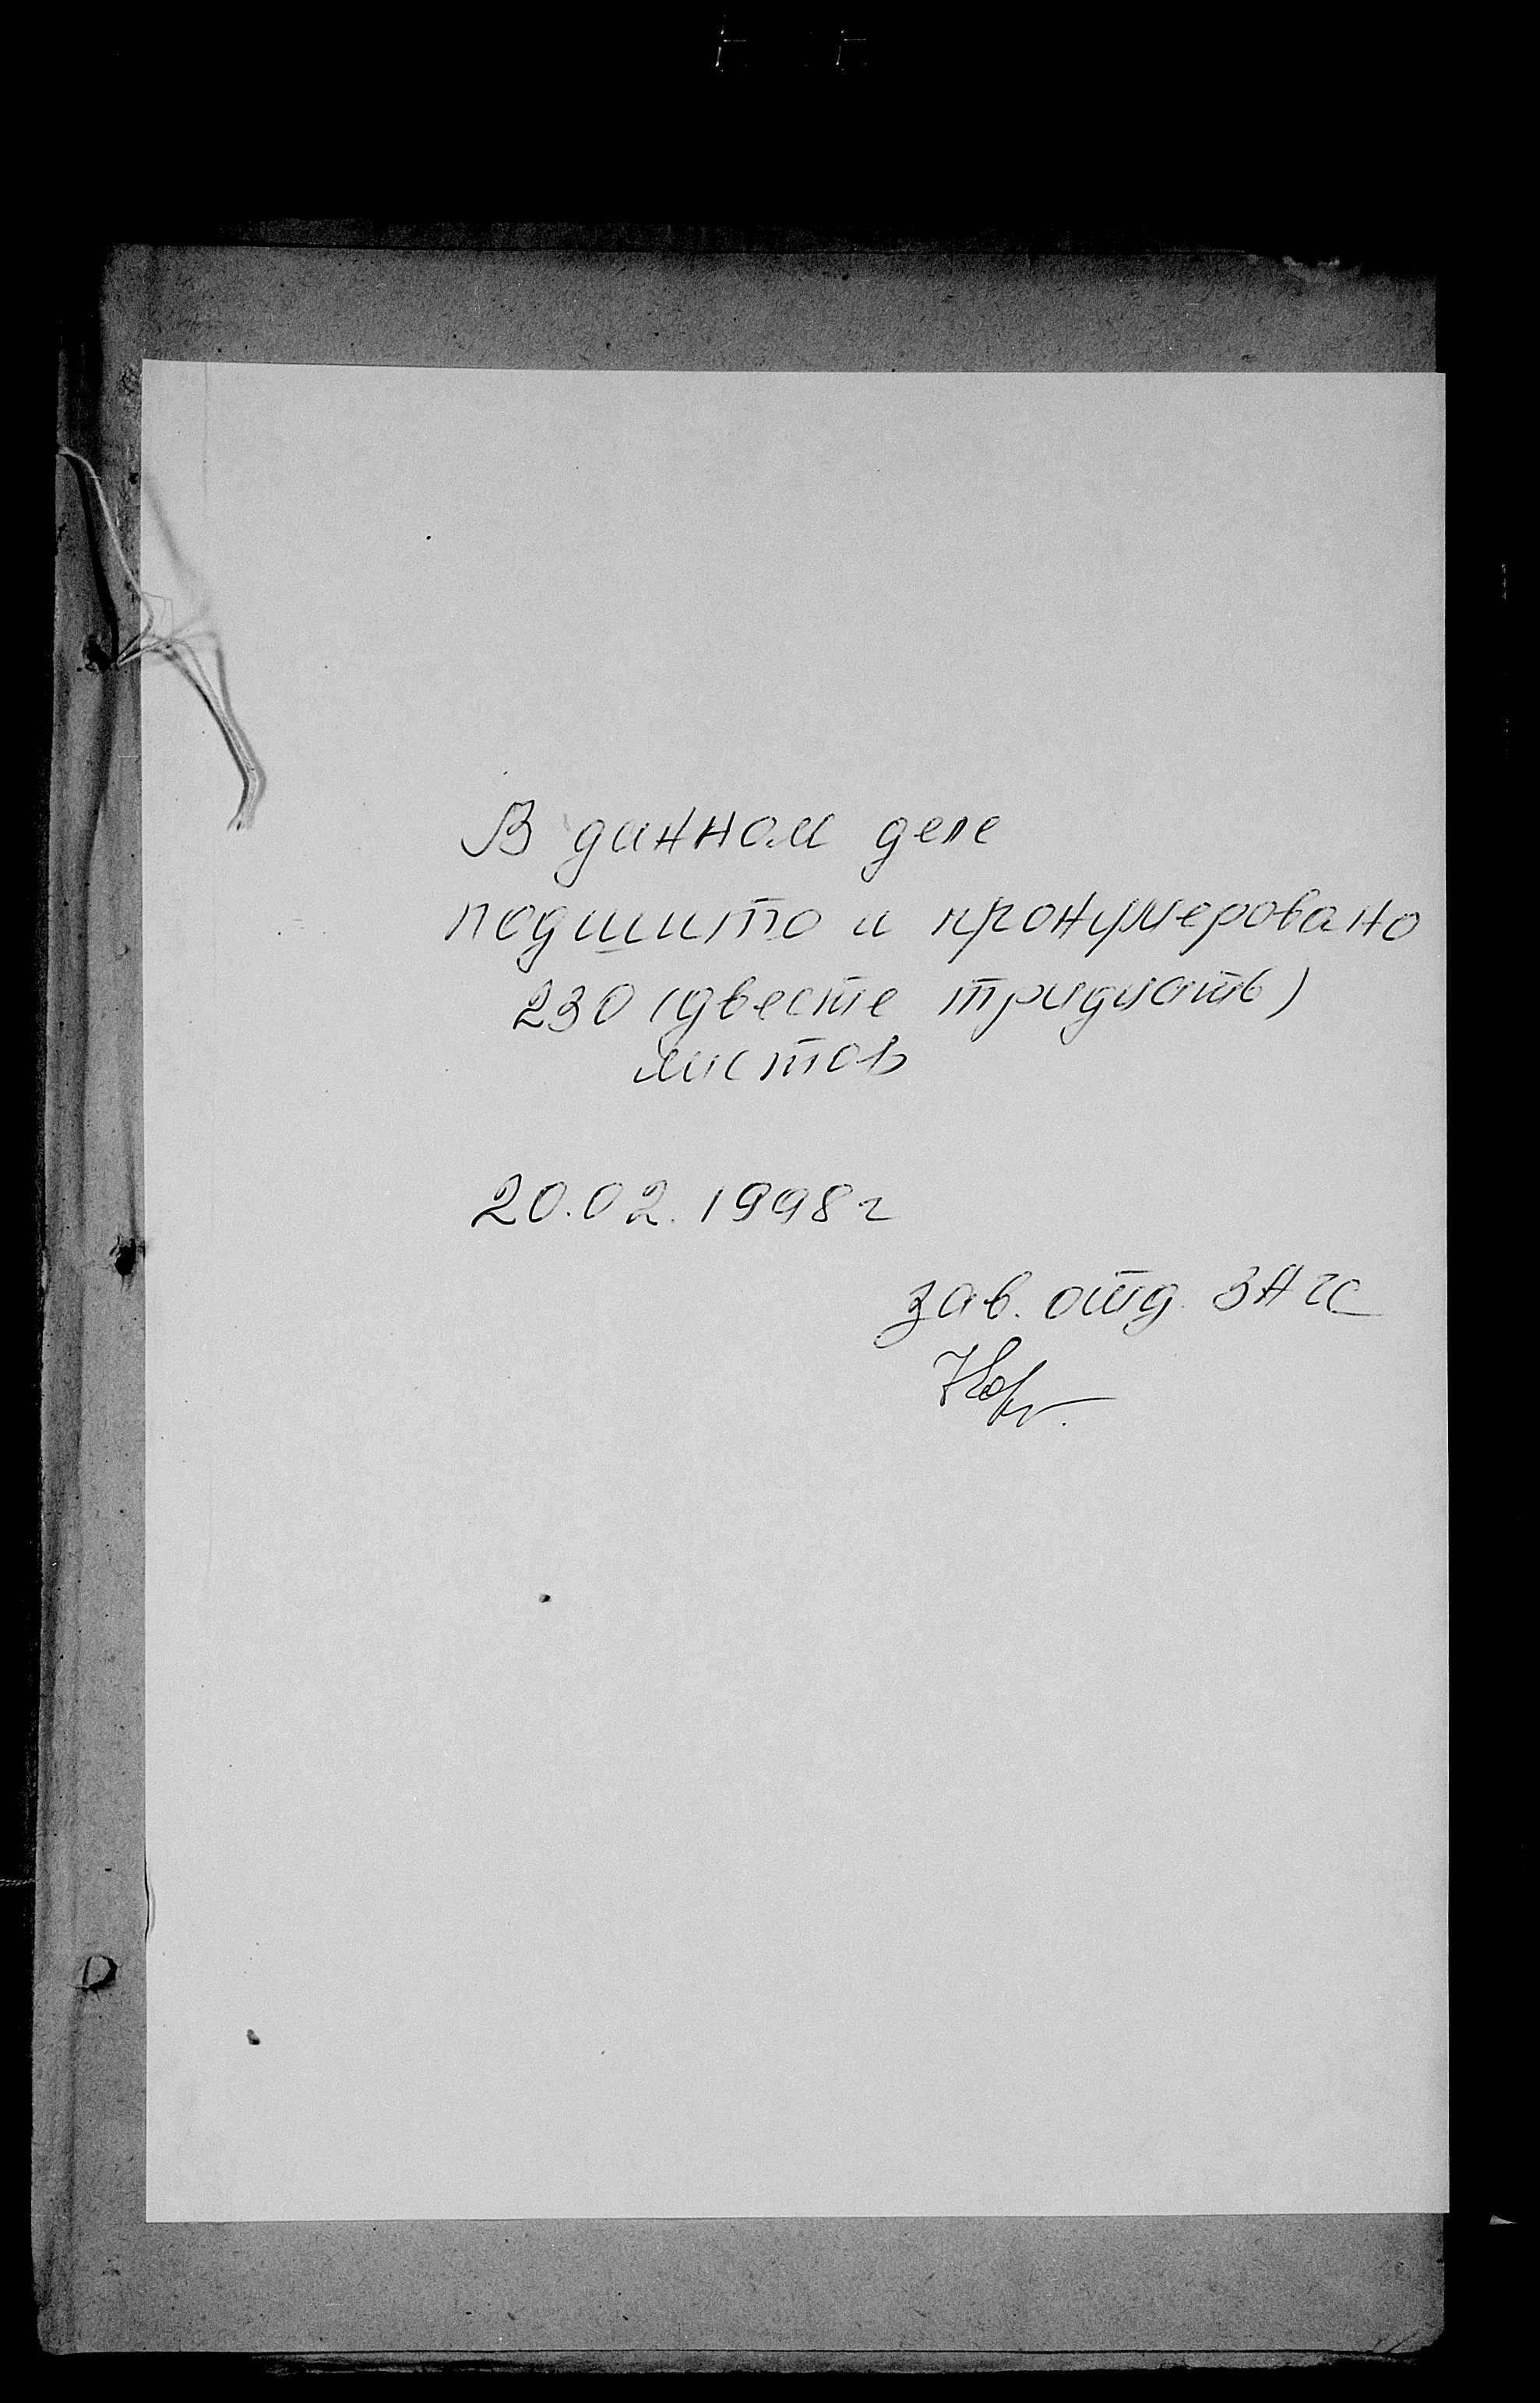 В данном деле
подшито и пронумеровано
230 (двести тридцать)
листов
20.02.1998 г
зав. отд. ЗАГС